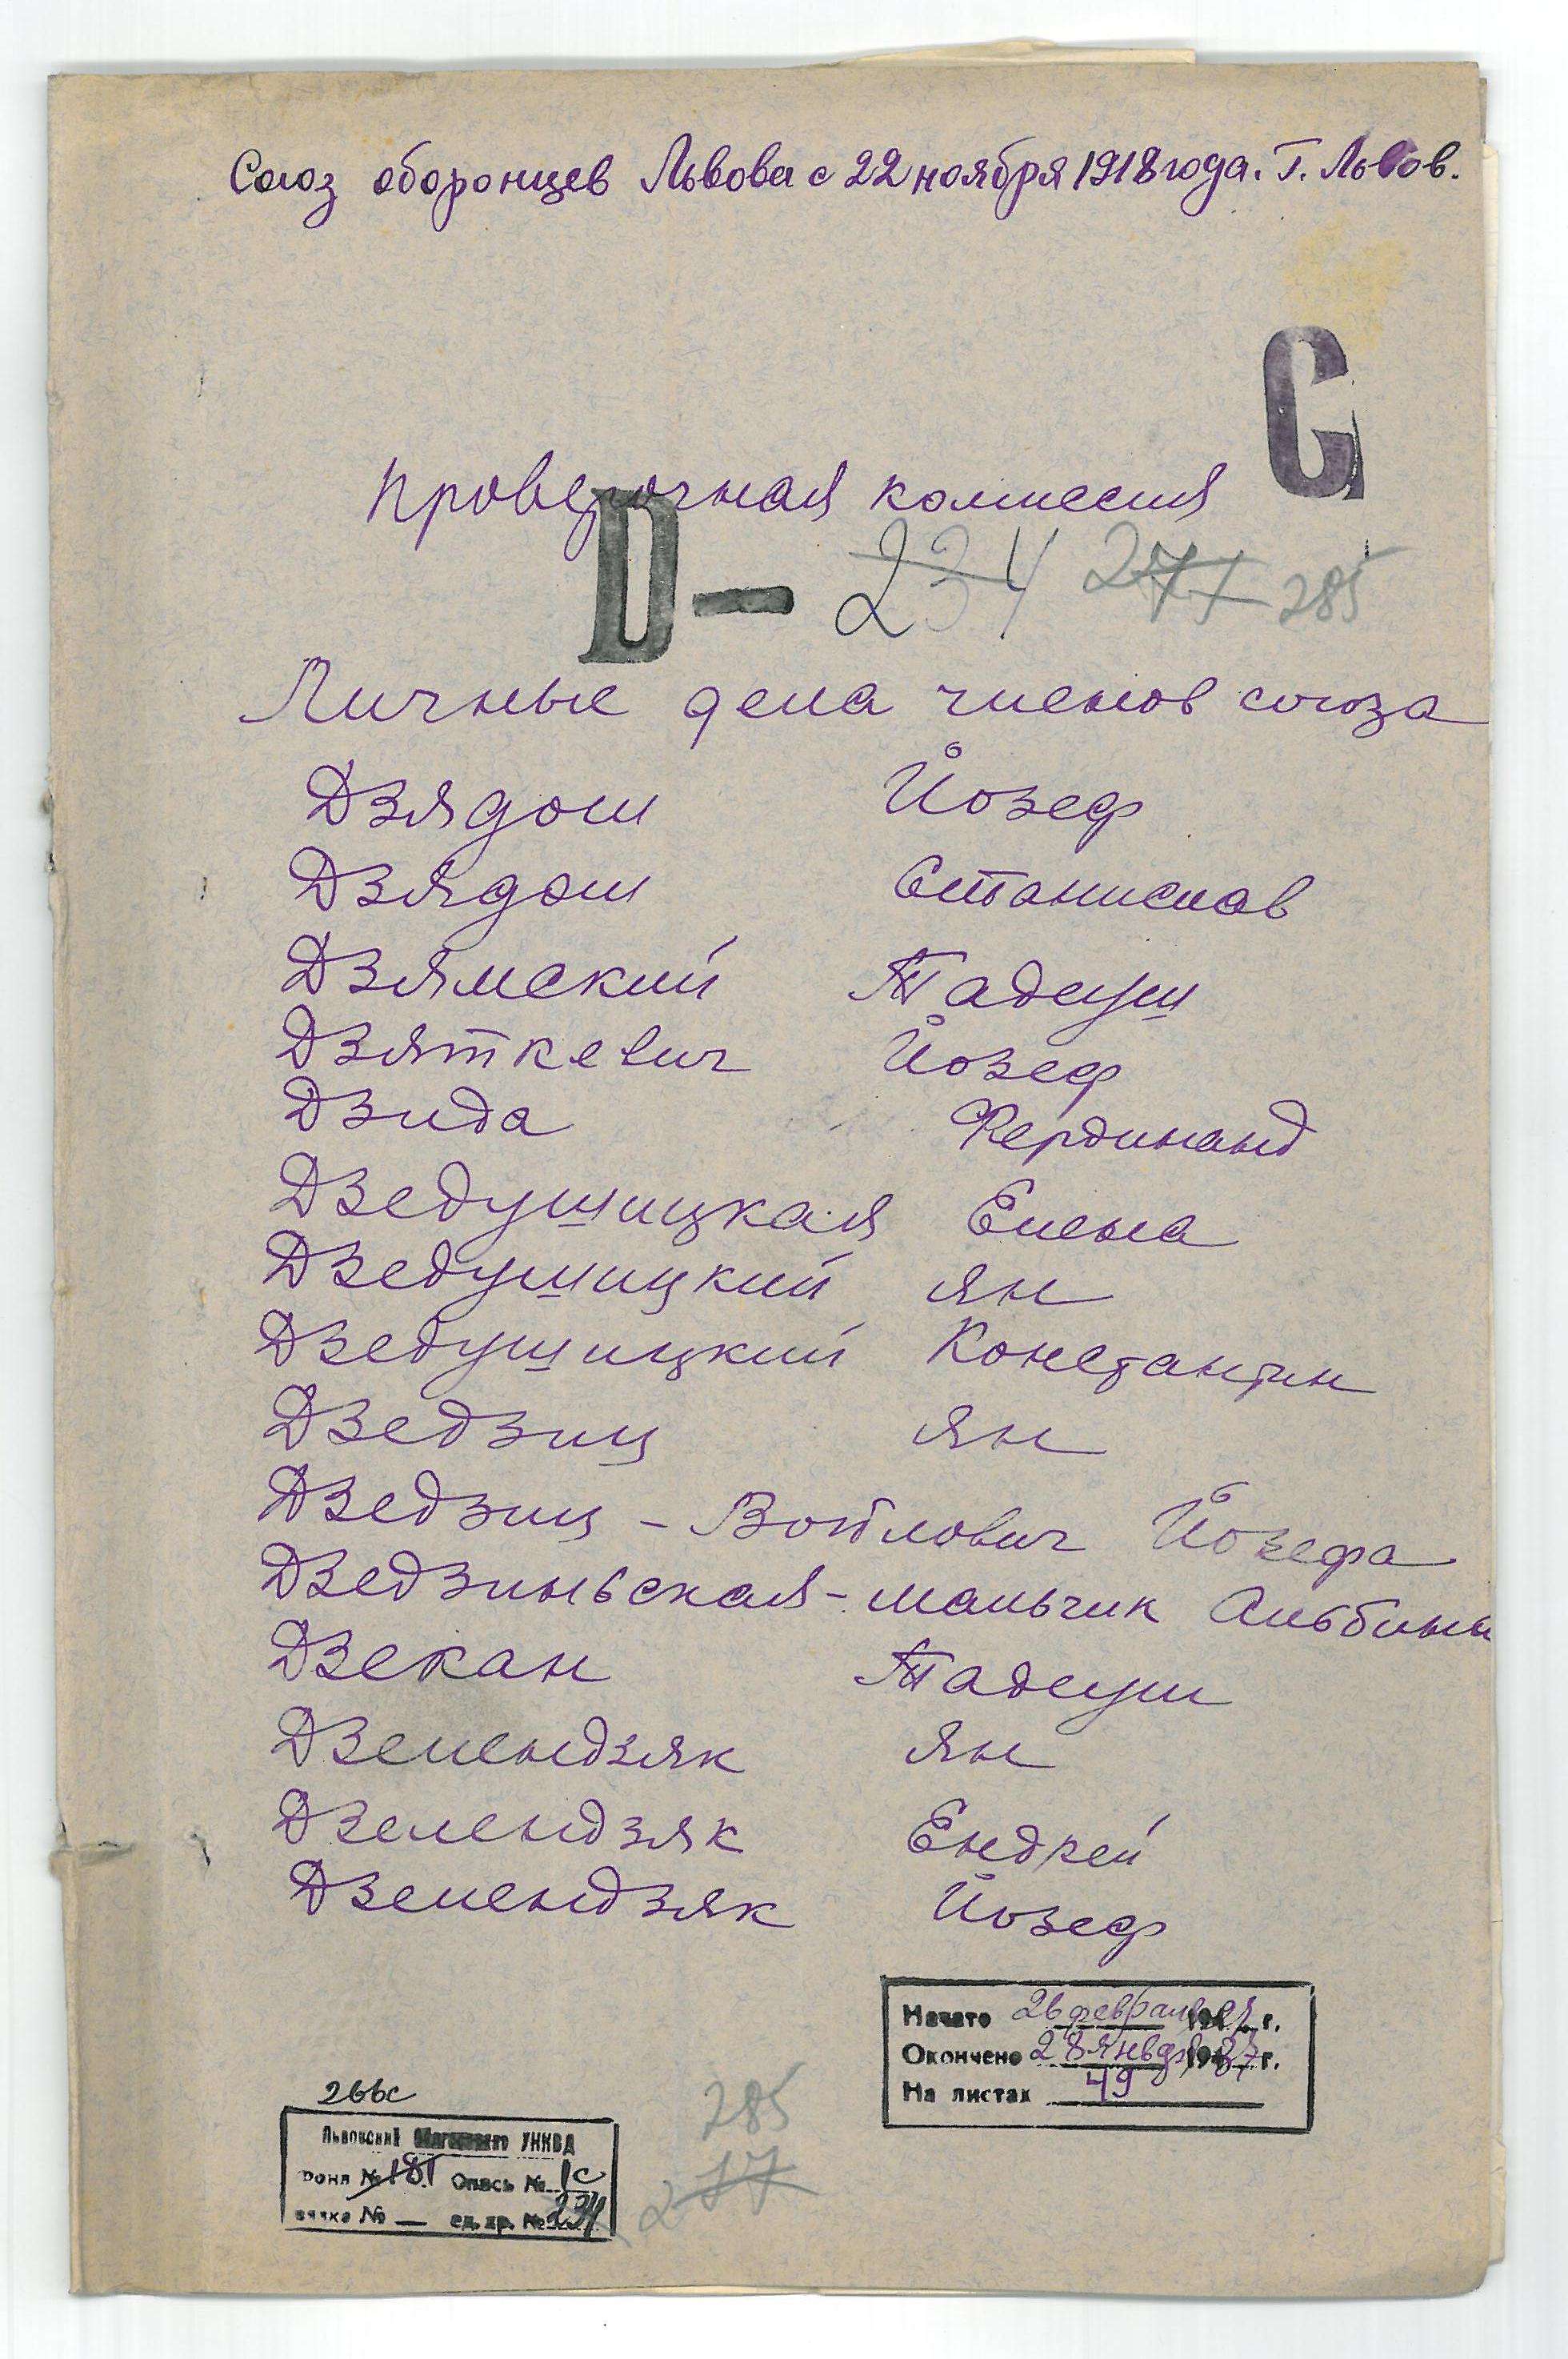 Союз оборонцев Львова с 22 ноября 1918 года. Г. Львов.
С
Проверочная комиссия
D — 234 277 285
Личные дела членов союза
Дзядош Йозеф
Дзядош Станислав
Дзямский Тадеуш
Дзяткевич Йозеф
Дзида Фердинанд
Дзедушицкая Елена
Дзедушицкий Ян
Дзедушицкий Константин
Дзедзиц Ян
Дзедзиц - Войлович Йозефа
Дзедзиньская - мальчик Альбина
Дзекан Тадеуш
Дзелендзяк Ян
Дзелендзяк Ендрей
Дзелендзяк Йозеф
Начато 26 февраля г.
Окончено 28 января г.
На листах 49
266с
285
277
Львовский УНКВД
фонд № 181 Опись № 1с
вязка № — ед. хр. № 234